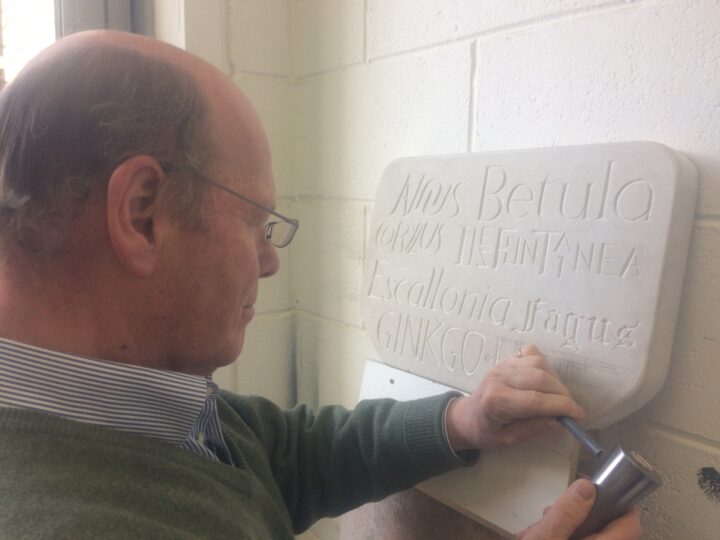 Alnus Betula
CORYLUS DESFONTAINEA
Escallonia Fagus
GINKGO